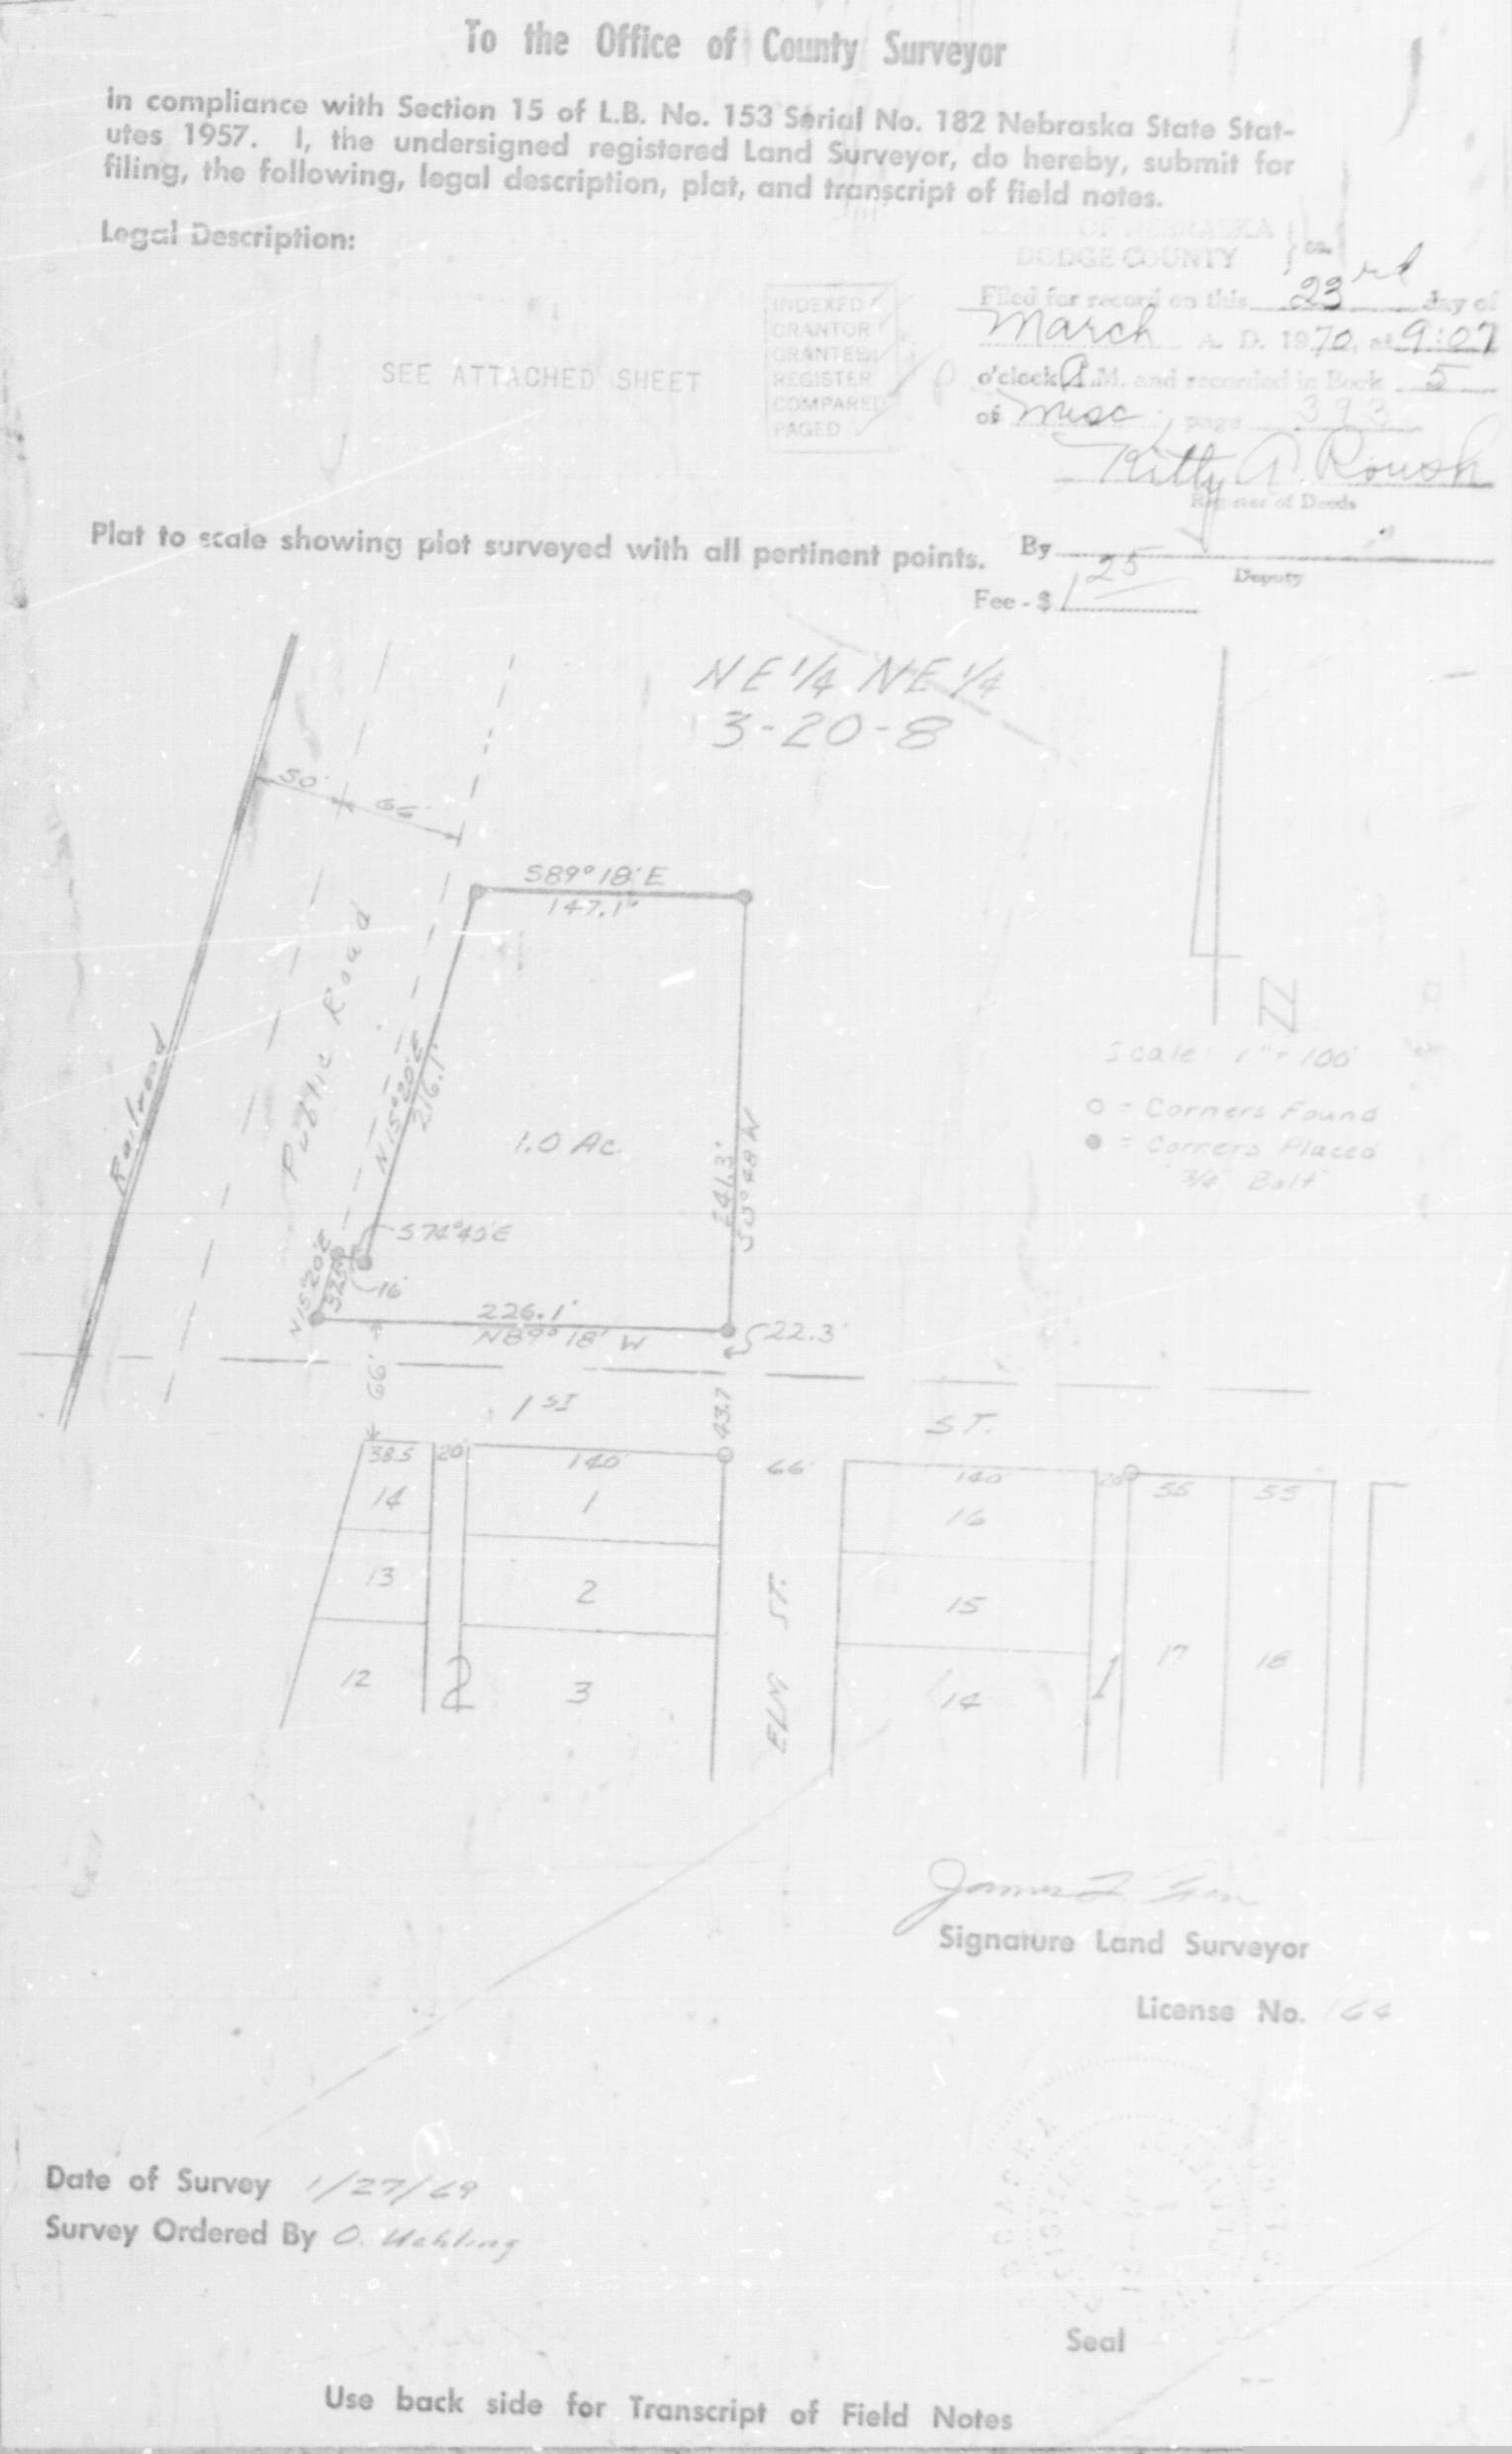 To the Office of County Surveyor
In compliance with Section 15 of L.B. No. 153 Serial No. 182 Nebraska State Stat-
utes 1957. I, the undersigned registered Land Surveyor, do hereby, submit for
filing, the following, legal description, plat, and transcript of field notes.
Legal Description:
OF NEBRASKA } ss.
DODGE COUNTY
Filed for record on this 23rd day of
March A. D. 1970, at 9:07
o'clock A.M. and recorded in Book 5
of Misc page 393
Kitty A. Roush
Register of Deeds
INDEXED
GRANTOR
GRANTEE
REGISTER
COMPARED
PAGED
SEE ATTACHED SHEET
Plat to scale showing plot surveyed with all pertinent points.
By
Deputy
Fee - $ 1 25
NE 1/4 NE 1/4
3-20-8
50'
66'
S89°18'E
147.1'
Railroad
Public Road
N15°20'E
216.1'
1.0 Ac.
241.3'
S0°48'W
N
Scale: 1" = 100'
O = Corners Found
● = Corners Placed
3/4" Bolt
S74°40'E
16'
N15°20'E
226.1'
N89°18' W
22.3'
66'
1 ST
ST.
43.7
38.5
20'
140'
66'
140'
20'
55
55
14
1
16
13
2
15
12
2
3
ELM ST.
14
1
17
18
Signature Land Surveyor
License No. 164
Date of Survey 1/27/69
Survey Ordered By O. Uehling
Seal
Use back side for Transcript of Field Notes